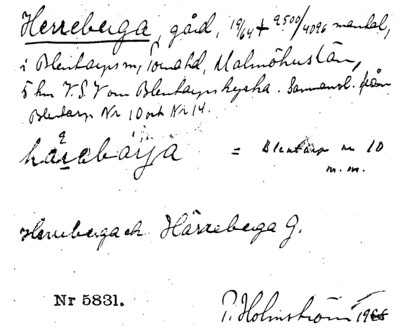 Herreberga, gård, 19/64 + 2500/4096 mantal,
i Blentarps sn, Torna hd, Malmöhus län,
5 km V.S.V om Blentarps kyrka. Sammansl. från
Blentarp Nr 10 och Nr 14.
hårebärja = Blentarp nr 10
m.m.
Herreberga och Härreberga G.
Nr 5831.
P. Holmström